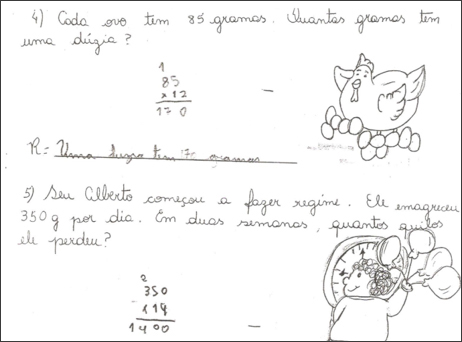 4) Cada ovo tem 85 gramas. Quantas gramas tem
uma dúzia?
1
85
× 12
17 0
—
R= Uma duzia tem gramas
5) Seu Alberto começou a fazer regime. Ele emagreceu
350 g por dia. Em duas semanas, quantos quilos
ele perdeu?
2
350
114
1400
—